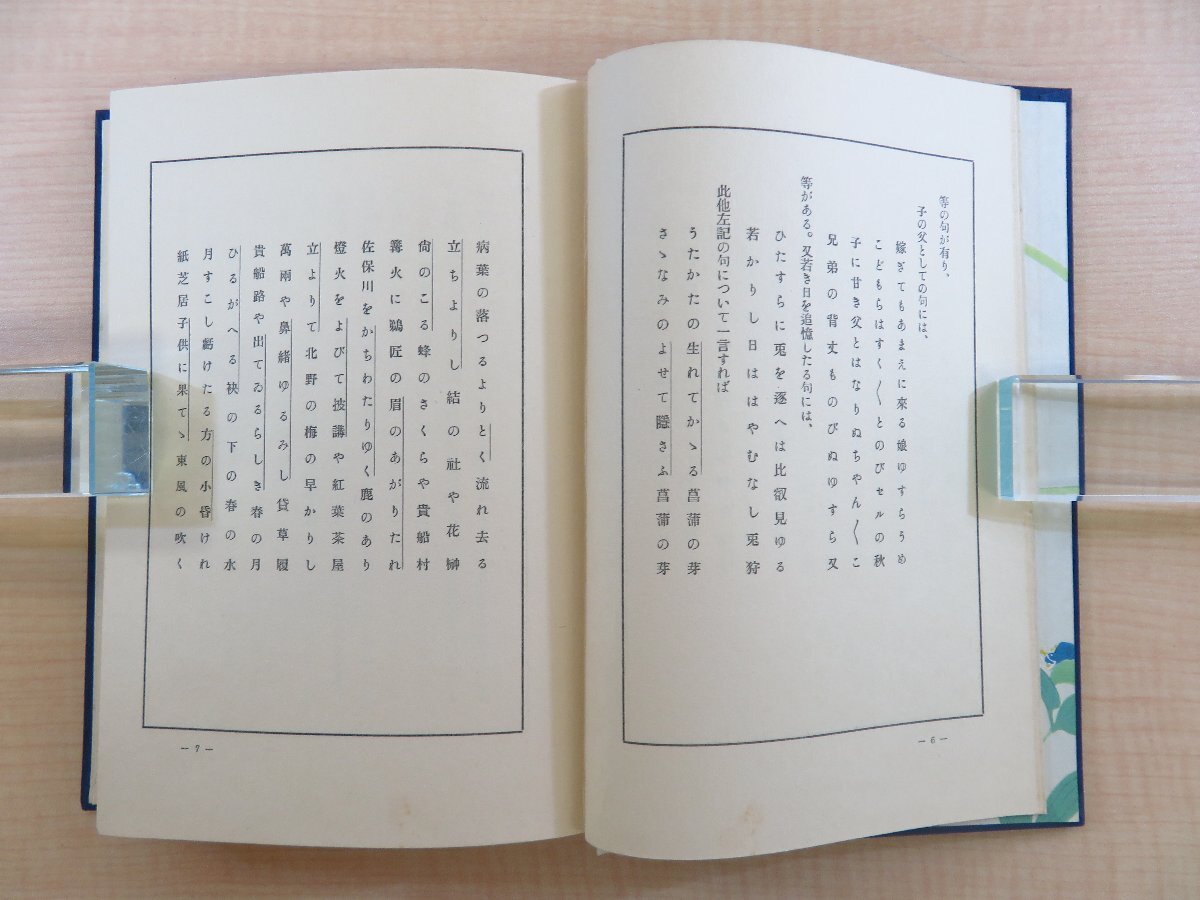 等の句が有り、
子の父としての句には、
嫁ぎてもあまえに來る娘ゆすらうめ
こどもらはすく〱とのびセルの秋
子に甘き父とはなりぬちやん〱こ
兄弟の背丈ものびぬゆすら又
等がある。又若き日を追憶したる句には、
ひたすらに兎を逐へは比叡見ゆる
若かりし日ははやむなし兎狩
此他左記の句について一言すれば
うたかたの生れてかゝる菖蒲の芽
さゝなみのよせて隠さふ菖蒲の芽
— 6 —
病葉の落つるよりとく流れ去る
立ちよりし結の社や花榊
尙のこる蜂のさくらや貴船村
篝火に鵜匠の眉のあがりたれ
佐保川をかちわたりゆく鹿のあり
燈火をよびて披講や紅葉茶屋
立よりて北野の梅の早かりし
萬兩や鼻緒ゆるみし貸草履
貴船路や出てゐるらしき春の月
ひるがへる袂の下の春の水
月すこし虧けたる方の小昏けれ
紙芝居子供に果てゝ東風の吹く
— 7 —